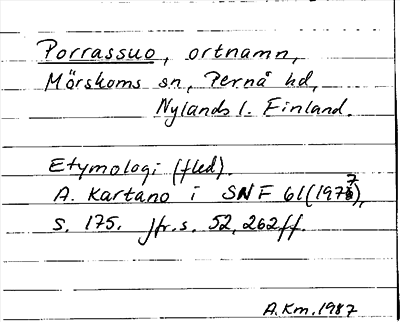 Porrassuo, ortnamn,
Mörskoms sn, Pernå hd,
Nylands l. Finland.
Etymologi (fled).
A. Kartano i SNF 61(1977),
s. 175. Jfr. s. 52, 262 ff.
A.Km. 1987